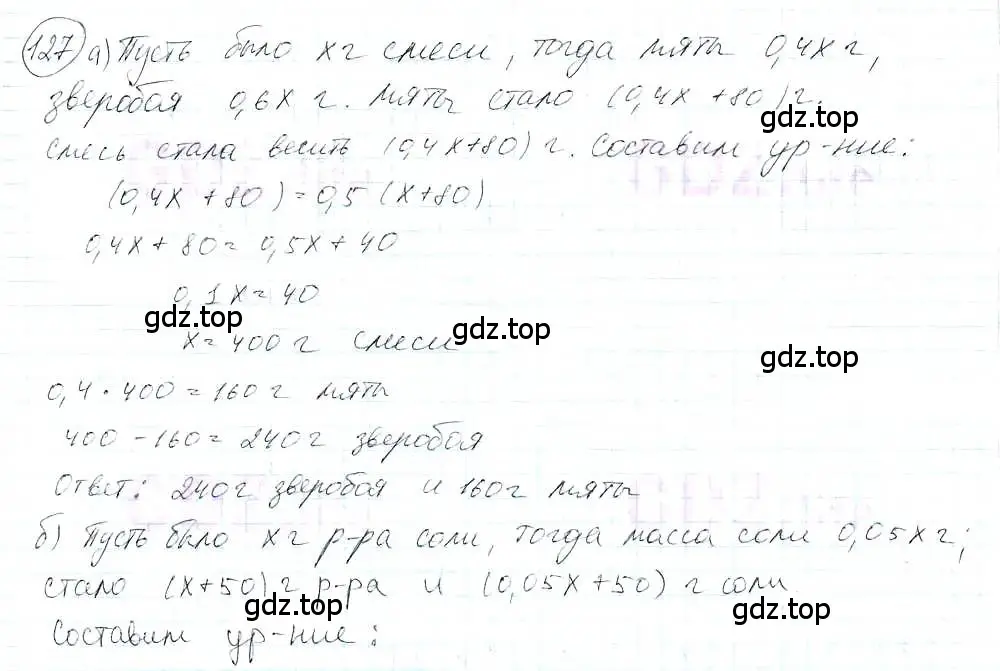 127 а) Пусть было х г смеси, тогда мяты 0,4х г,
зверобоя 0,6х г. Мяты стало (0,4х +80) г.
gdz.top
Смесь стала весить (0,4х+80) г. Составим ур-ние:
(0,4х +80) = 0,5 (х+80)
0,4х + 80 = 0,5х + 40
0,1х = 40
gdz.top gdz.top
х = 400 г смеси
gdz.top
0,4 · 400 = 160 г мяты
400 - 160 = 240 г зверобоя
Ответ: 240 г зверобоя и 160 г мяты
б) Пусть было х г р-ра соли, тогда масса соли 0,05х г;
стало (х+50) г р-ра и (0,05х +50) г соли
gdz.top gdz.top gdz.top
Составим ур-ние: